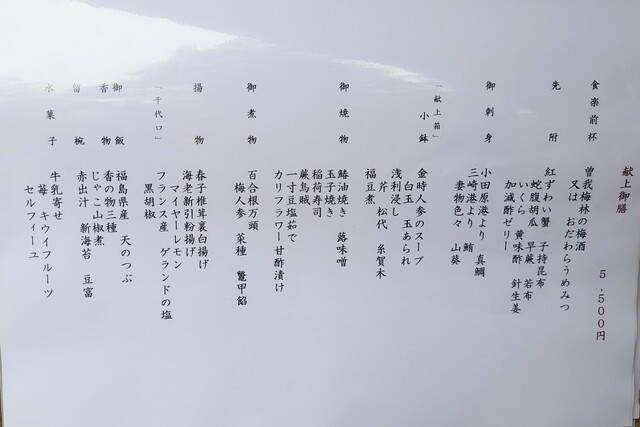 献上御膳 5,500円
食楽前杯 曽我梅林の梅酒
又は おだわらうめみつ
先附 紅ずわい蟹 子持昆布
蛇腹胡瓜 早蕨 若布
いくら 黄味酢 針生姜
加減酢ゼリー
御刺身 小田原港より 真鯛
三崎港より 鮪
妻物色々 山葵
「献上箱」
小鉢 金時人参のスープ
白玉 玉あられ
浅利浸し
芹 松代 糸賀木
福豆煮
御焼物 鰆油焼き 蕗味噌
玉子焼き
稲荷寿司
蕨烏賊
一寸豆塩茹で
カリフラワー甘酢漬け
御煮物 百合根万頭
梅人参 菜種 鼈甲餡
揚物 春子椎茸裏白揚げ
海老新引粉揚げ
マイヤーレモン
「千代口」 フランス産 ゲランドの塩
黒胡椒
御飯 福島県産 天のつぶ
香物 香の物三種
じゃこ山椒煮
留椀 赤出汁 新海苔 豆富
水菓子 牛乳寄せ
苺 キウイフルーツ
セルフィーユ